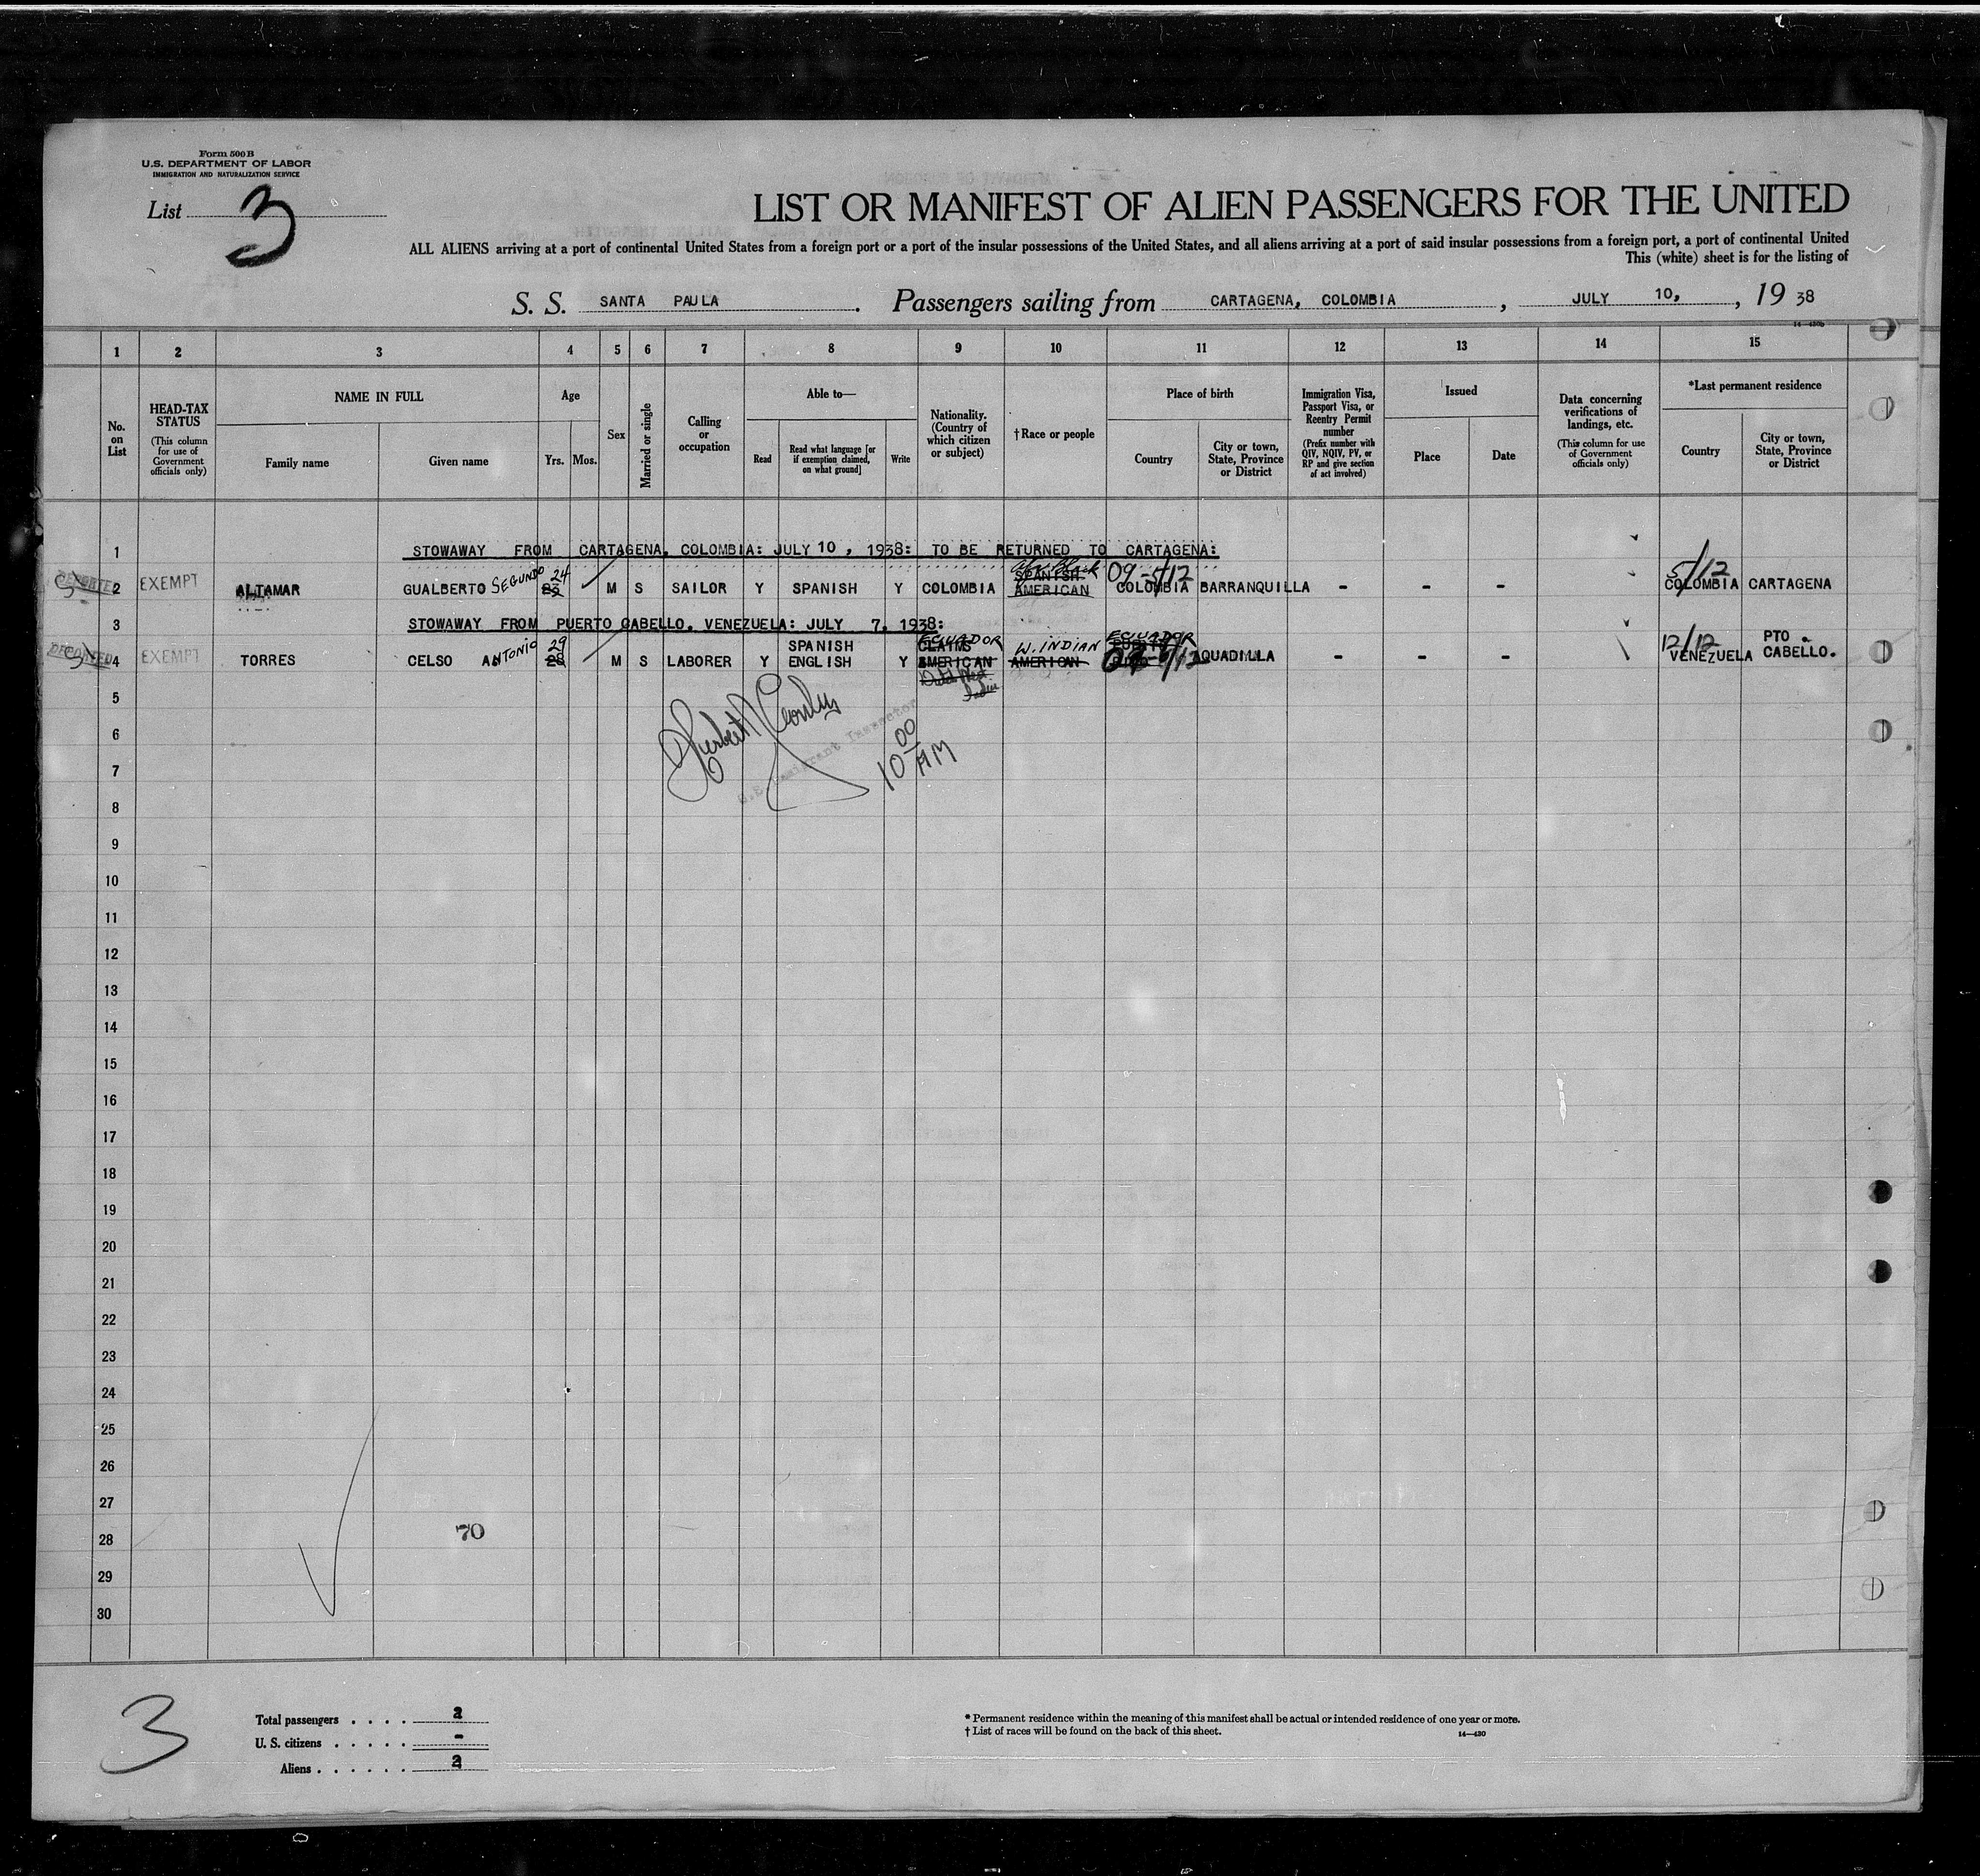 Form 500 B
U.S. DEPARTMENT OF LABOR
IMMIGRATION AND NATURALIZATION SERVICE
List 3
LIST OR MANIFEST OF ALIEN PASSENGERS FOR THE UNITED
ALL ALIENS arriving at a port of continental United States from a foreign port or a port of the insular possessions of the United States, and all aliens arriving at a port of said insular possessions from a foreign port, a port of continental United
This (white) sheet is for the listing of
S. S. SANTA PAULA. Passengers sailing from CARTAGENA, COLOMBIA, JULY 10, , 19 38
1 2 3 4 5 6 7 8 9 10 11 12 13 14 15
No. on List
HEAD-TAX STATUS
(This column for use of Government officials only)
NAME IN FULL
Family name
Given name
Age
Yrs.
Mos.
Sex
Married or single
Calling or occupation
Able to—
Read
Read what language [or if exemption claimed, on what ground]
Write
Nationality. (Country of which citizen or subject)
†Race or people
Place of birth
Country
City or town, State, Province or District
Immigration Visa, Passport Visa, or Reentry Permit number
(Prefix number with QIV, NQIV, PV, or RP and give section of act involved)
Issued
Place
Date
Data concerning verifications of landings, etc.
(This column for use of Government officials only)
*Last permanent residence
Country
City or town, State, Province or District
1 STOWAWAY FROM CARTAGENA, COLOMBIA: JULY 10, 1938: TO BE RETURNED TO CARTAGENA:
DEPORTED 2 EXEMPT ALTAMAR GUALBERTO SEGUNDO 24 M S SAILOR Y SPANISH Y COLOMBIA SPANISH AMERICAN Black 09-5/12 COLOMBIA BARRANQUILLA - - - 5/12 COLOMBIA CARTAGENA
3 STOWAWAY FROM PUERTO CABELLO, VENEZUELA: JULY 7, 1938:
DEPORTED 4 EXEMPT TORRES CELSO ANTONIO 29 28 M S LABORER Y SPANISH ENGLISH Y ECUADOR CLAIMS AMERICAN W. INDIAN AMERICAN ECUADOR AQUADILLA - - - 12/12 VENEZUELA PTO CABELLO.
5
6
7
U.S. Immigrant Inspector
10 00 AM
8
9
10
11
12
13
14
15
16
17
18
19
20
21
22
23
24
25
26
27
28 70
29
30
3
Total passengers . . . . 2
U. S. citizens . . . . . -
Aliens . . . . . . 2
* Permanent residence within the meaning of this manifest shall be actual or intended residence of one year or more.
† List of races will be found on the back of this sheet.
14—430